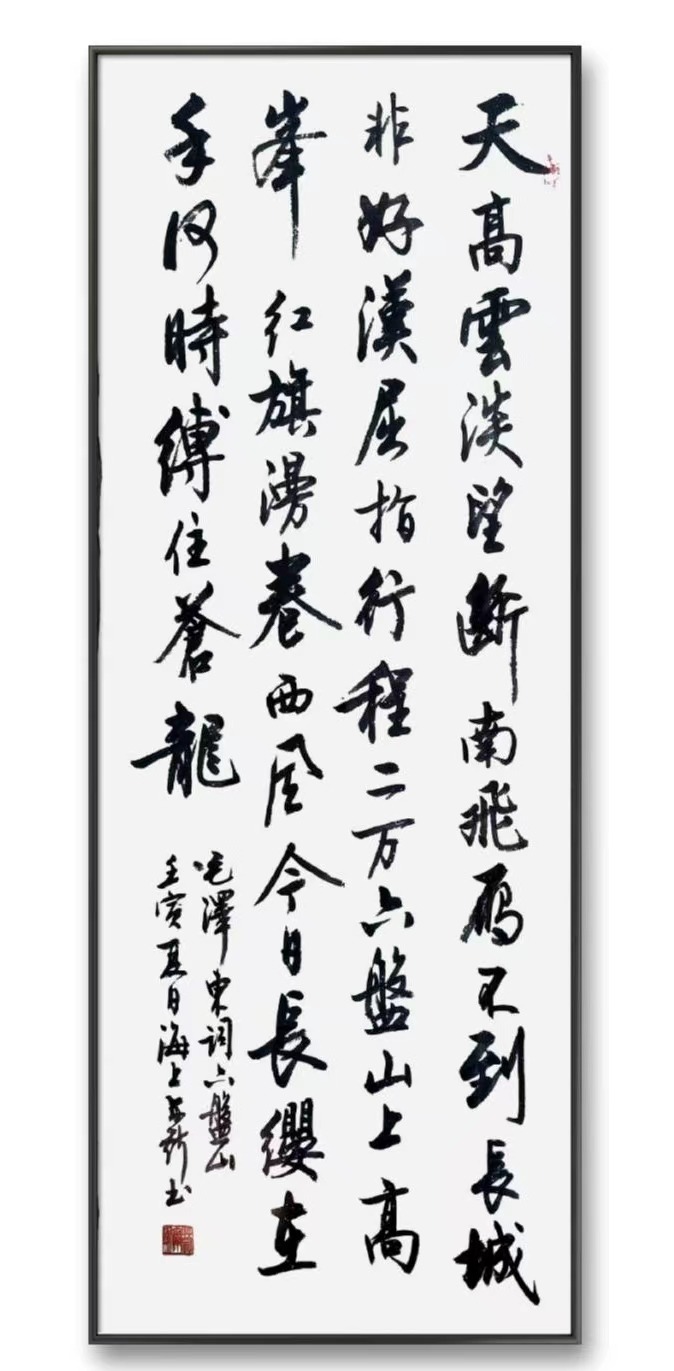 天高雲淡望斷南飛雁不到長城
非好漢屈指行程二万六盤山上高
峯红旗漫卷西风今日長纓在
手何時縛住蒼龍
毛澤東詞六盤山
壬寅夏日海上书